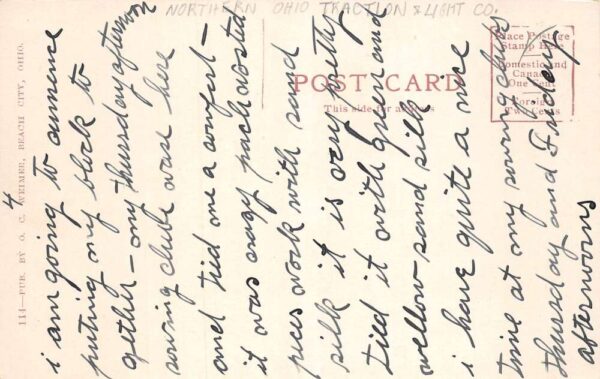 NORTHERN OHIO TRACTION & LIGHT CO.
POST CARD
This side for address
Place Postage
Stamp Here
Domestic and
Canada
One Cent
Foreign
Two Cents
114—PUB. BY O. C. WEIMER, BEACH CITY, OHIO.
4
i am going to
puting my block to
gether - my thursday afternoon
sowing clube wase here
and tied me a comfort -
it was crazy pach wosted
pices work with sand
silk it is very pretty
tied it with green and
yellow sand silk
i have quite a nice
time at my sowing clubs
thursday and Friday
afternoons